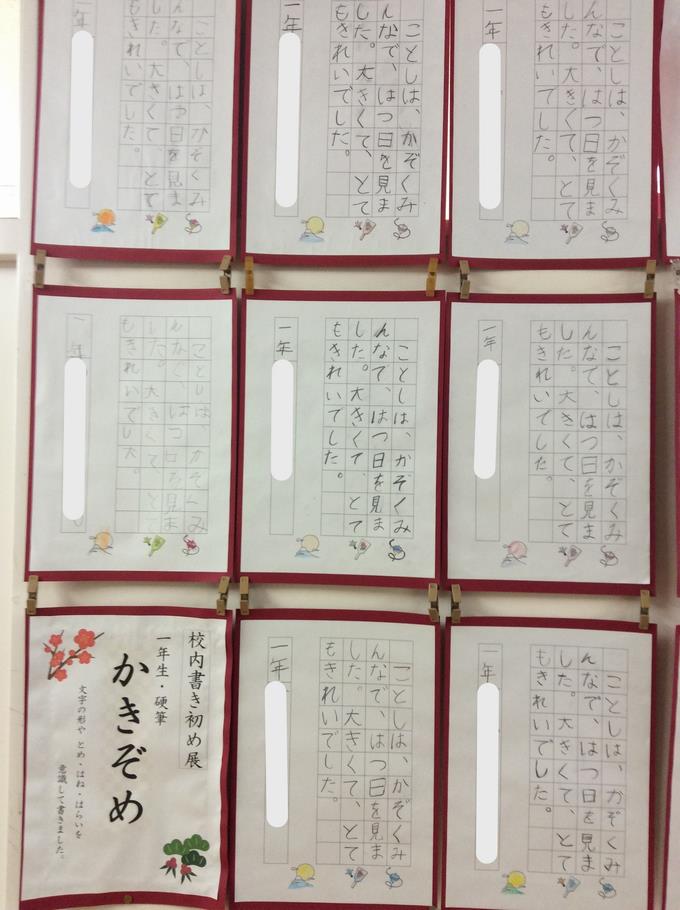 ことしは、かぞくみ
んなで、はつ日を見ま
した。大きくて、とて
もきれいでした。
一年
ことしは、かぞくみ
んなで、はつ日を見ま
した。大きくて、とて
もきれいでした。
一年
ことしは、かぞくみ
んなで、はつ日を見ま
した。大きくて、とて
もきれいでした。
一年
ことしは、かぞくみ
んなで、はつ日を見ま
した。大きくて、とて
もきれいでした。
一年
ことしは、かぞくみ
んなで、はつ日を見ま
した。大きくて、とて
もきれいでした。
一年
ことしは、かぞくみ
んなで、はつ日を見ま
した。大きくて、とて
もきれいでした。
一年
校内書き初め展
一年生・硬筆
かきぞめ
文字の形や とめ・はね・はらいを
意識して書きました。
ことしは、かぞくみ
んなで、はつ日を見ま
した。大きくて、とて
もきれいでした。
一年
ことしは、かぞくみ
んなで、はつ日を見ま
した。大きくて、とて
もきれいでした。
一年